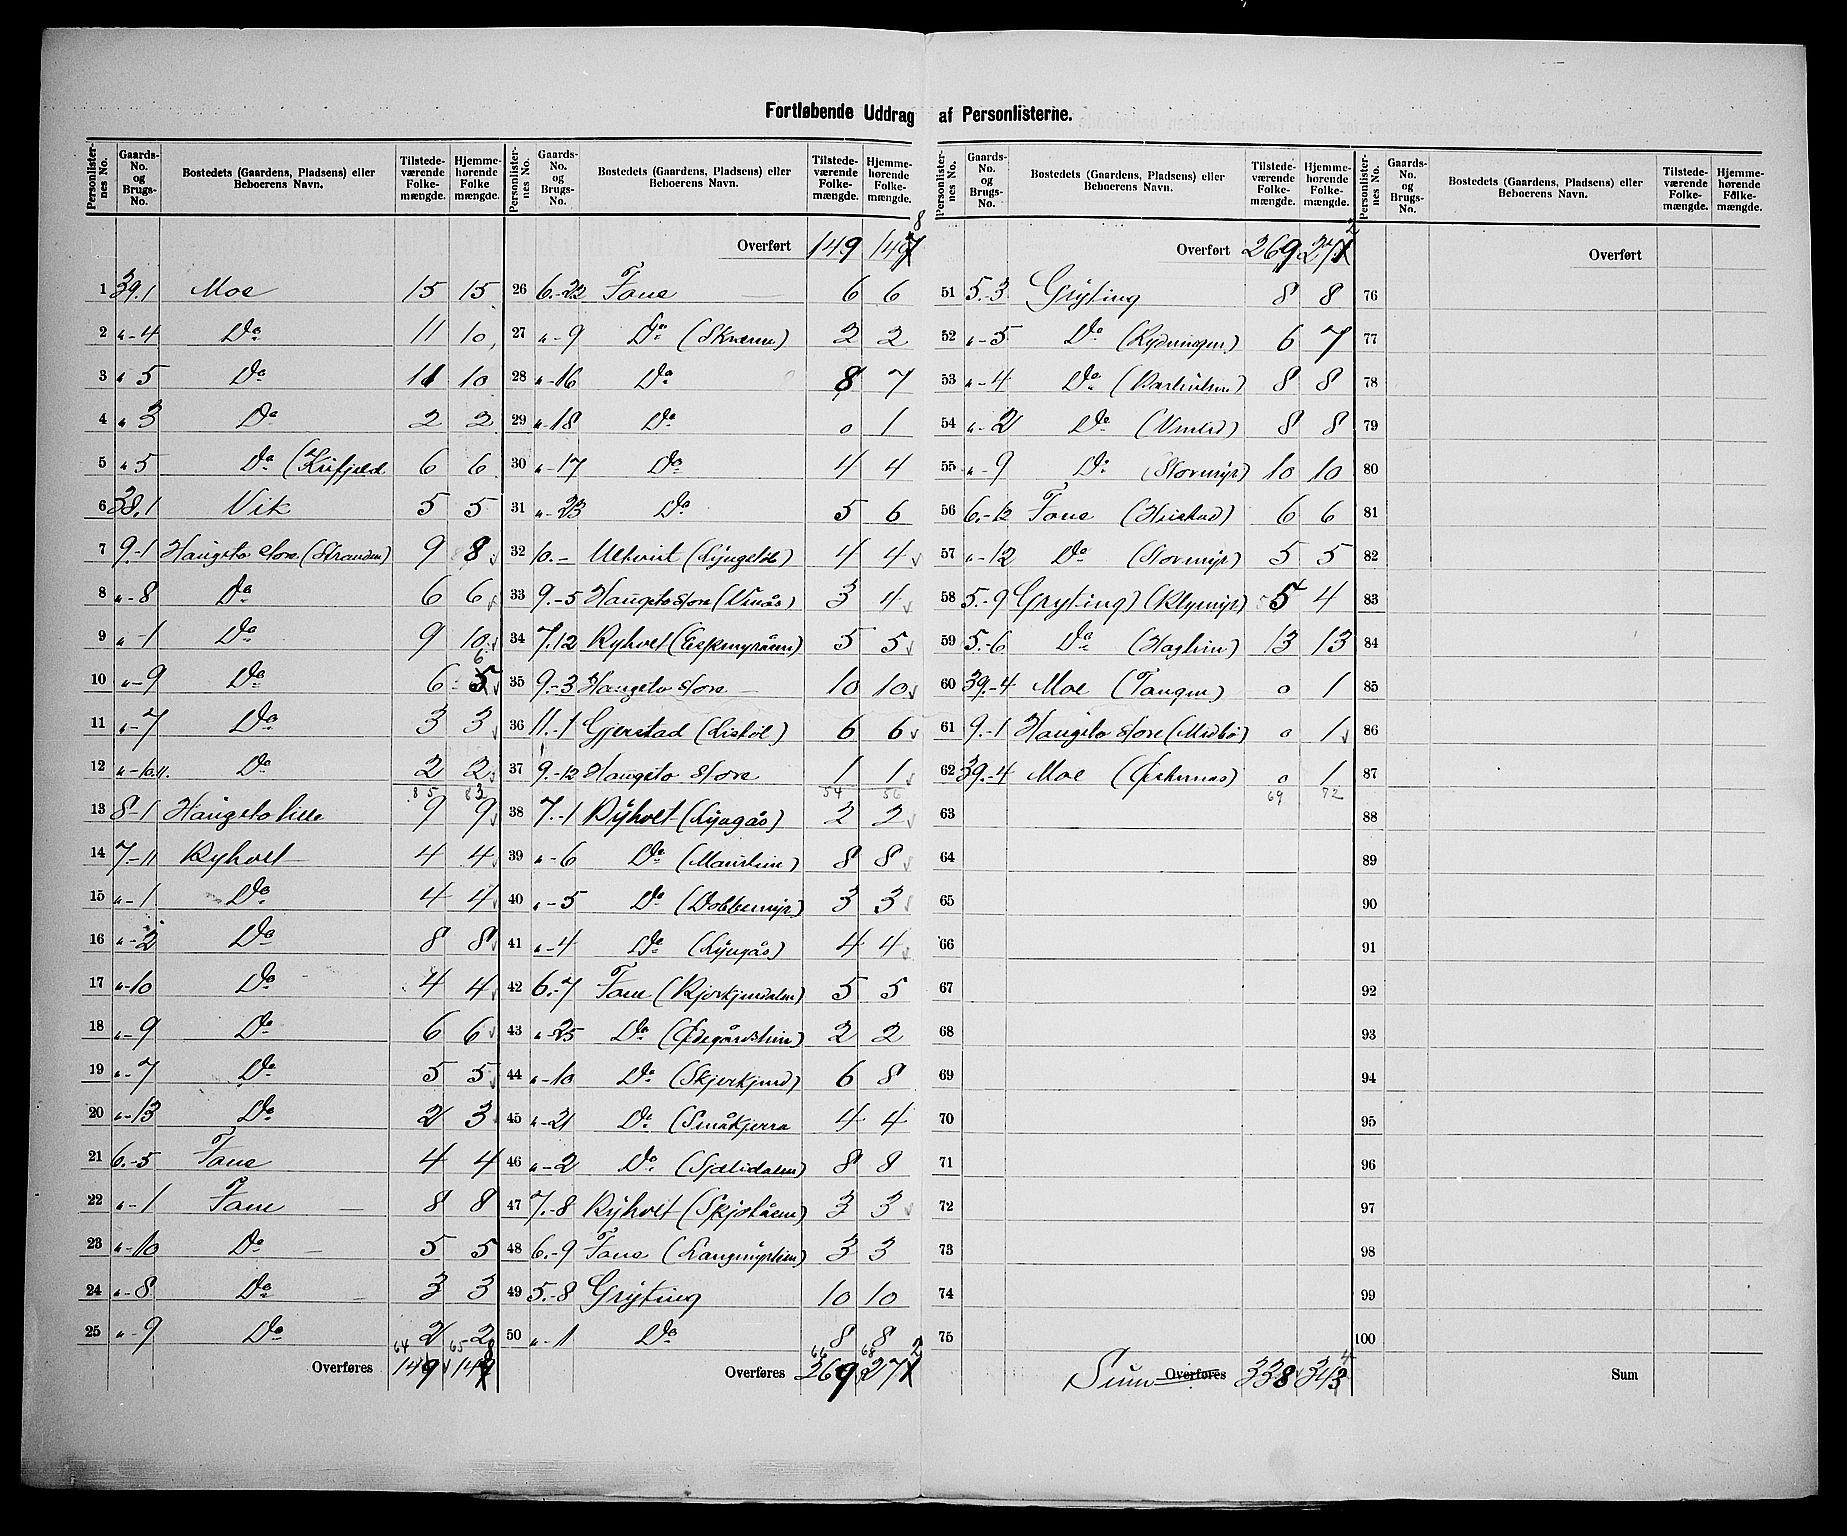 Fortløbende Uddrag af Personlisterne.
Personlisternes No. Gaards-No. og Brugs-No. Bostedets (Gaardens, Pladsens) eller Beboerens Navn. Tilstedeværende Folkemængde. Hjemmehørende Folkemængde.
1 39.1 Moe 15 15
2 „-4 Do 11 10
3 „ 5 Do 11 10
4 „ 3 Do 2 2
5 „ 5 Do 6 6
6 38.1 Vik 5 5
7 9.-1 Haugeto store (Stranden) 9 8
8 „-8 Do 6 6
9 „-1 Do 9 10
10 „-9 Do 6 5 6
11 „-7 Do 3 3
12 „-10.11. Do 2 2
85 83
13 8-1 Haugeto lille 9 9
14 7.-11 Ryholt 4 4
15 „-1 Do 4 4
16 „-2 Do 8 8
17 „-10 Do 4 4
18 „-9 Do 6 6
19 „-7 Do 5 5
20 „-13 Do 2 3
21 6.-5 Fone 4 4
22 „-1 Fone 8 8
23 „-10 Do 5 5
24 „-8 Do 3 3
25 „-9 Do 2 2
64 65
Overføres 149 148
Overført 149 148
26 6.-22 Fone 6 6
27 „-9 Do 2 2
28 „-16 Do 8 7
29 „-18 Do 0 1
30 „-17 Do 4 4
31 „-23 Do 5 6
32 10.- 4 4
33 9.-5 Haugeto store 3 4
34 7.12 Ryholt 5 5
35 9.-3 Haugeto store 10 10
36 11.-1 Gjerstad 6 6
37 9.-12 Haugeto store 1 1
54 56
38 7.-1 Ryholt (Lyngås) 2 2
39 „-6 Do 8 8
40 „-5 Do (Dobbemyr) 3 3
41 „-4 Do (Lyngås) 4 4
42 6.-7 Fone 5 5
43 „-25 Do 2 2
44 „-10 Do 6 8
45 „-21 Do (Småkjerra 4 4
46 „-2 Do 8 8
47 7.-8 Ryholt 3 3
48 6.-9 Fone 3 3
49 5.-8 Gryting 10 10
50 „-1 Do 8 8
66 68
Overføres 269 272
Overført 269 272
51 5.-3 Gryting 8 8
52 „-5 Do 6 7
53 „-4 Do 8 8
54 „-2 Do 8 8
55 „-9 Do (Stormyr) 10 10
56 6.-12 Fone 6 6
57 „-12 Do (Stormyr) 5 5
58 5.-9 Gryting 5 4
59 5.-6 Do 13 13
60 39.-4 Moe (Tangen) 0 1
61 9.-1 Haugeto store (Midbø) 0 1
62 39.-4 Moe 0 1
69 72
63
64
65
66
67
68
69
70
71
72
73
74
75
Sum Overføres 338 343 4
Overført
76
77
78
79
80
81
82
83
84
85
86
87
88
89
90
91
92
93
94
95
96
97
98
99
100
Sum